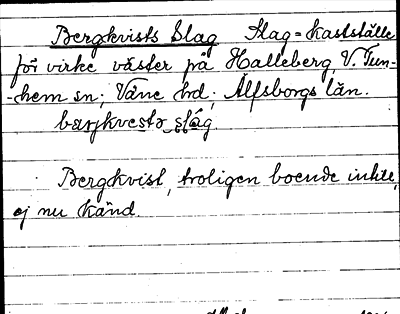 Bergkvists Slag Slag = Kastställe
för virke väster på Halleberg, V. Tun-
-hem sn; Väne hd; Älfsborgs län.
Bergkvist, troligen boende intill,
ej nu känd.